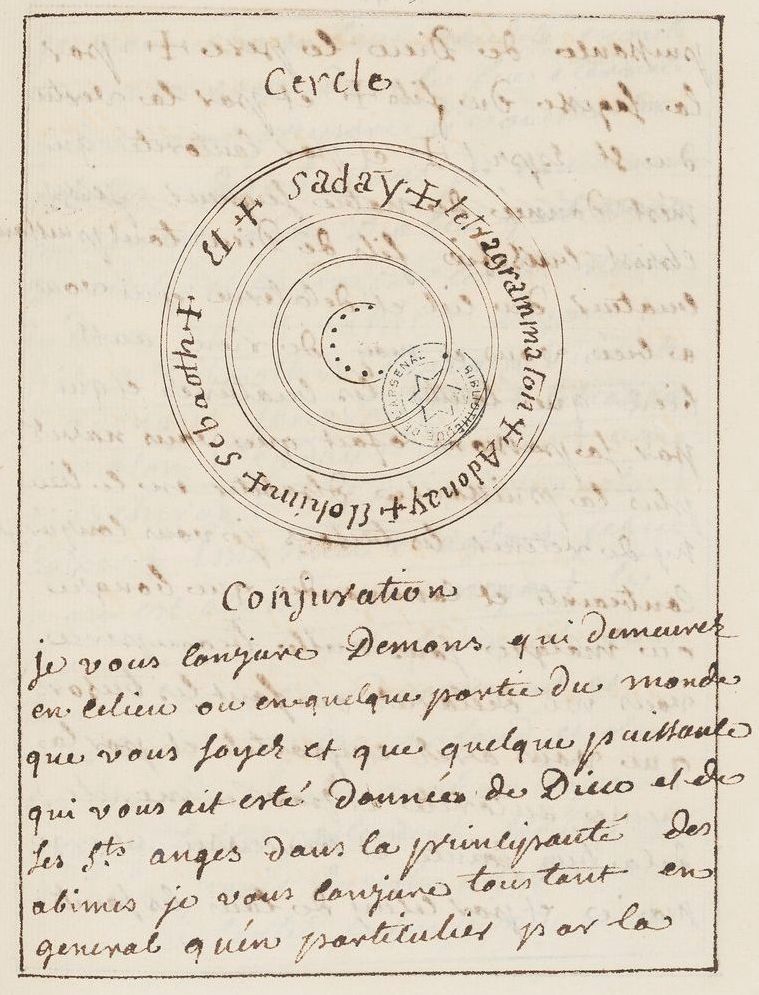 Cercle
Saday + tetragrammaton + Adonay + Elohim + Sebaoth + El +
BIBLIOTHEQUE DE L'ARSENAL
Conjuration
je vous conjure Demons qui demeurez
en ce lieu ou en quelque partie du monde
que vous soyez et que quelque puissance
qui vous ait esté donnée de Dieu et de
ses Sts anges dans la principauté des
abimes je vous conjure tous tant en
general qu'en particulier par la